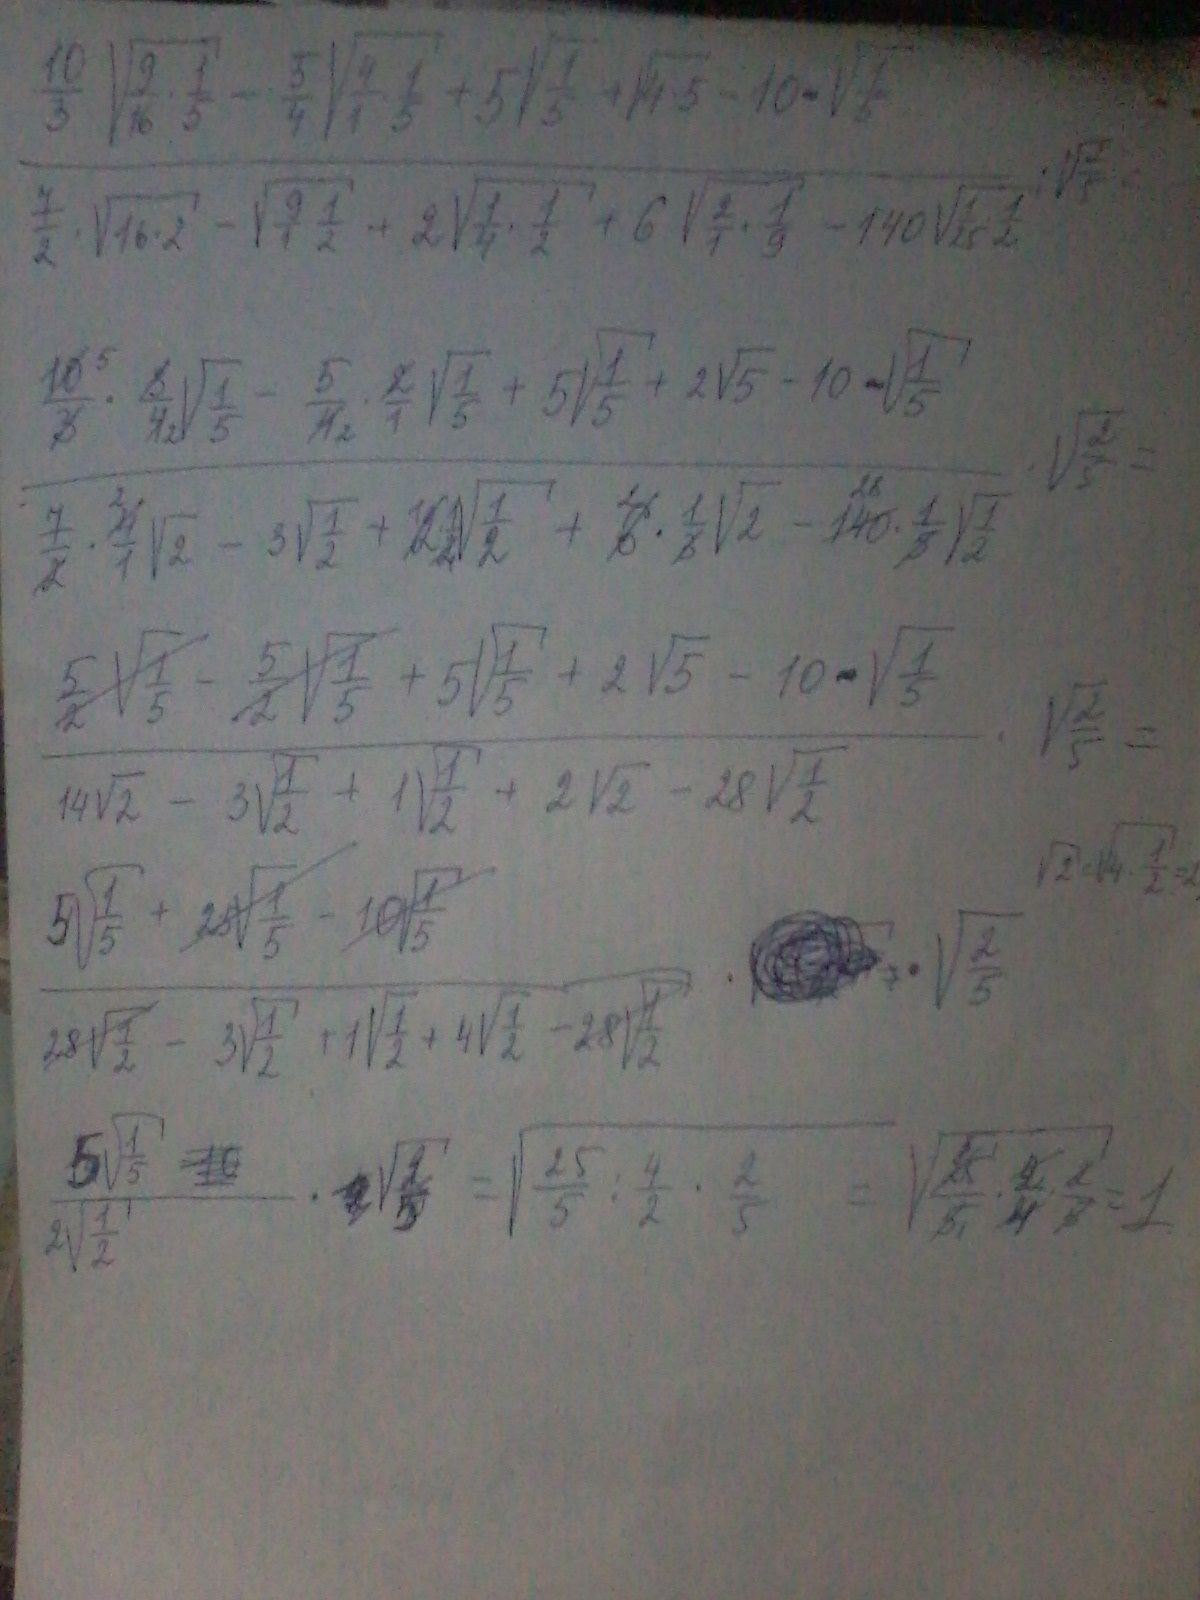 10/3 √(9/16 · 1/5) - 5/4 √(4/1 · 1/5) + 5√(1/5) + √(4·5) - 10 · √(1/5)
7/2 · √(16·2) - √(9/1 · 1/2) + 2√(1/4 · 1/2) + 6√(2/1 · 1/9) - 140√(1/25 · 1/2) · √(2/5) =
10/3 5 · 3/4 2 √(1/5) - 5/4 2 · 2/1 √(1/5) + 5√(1/5) + 2√5 - 10 · √(1/5)
7/2 · 4/1 2 √2 - 3√(1/2) + √(1/2) + 6 2 · 1/3 √2 - 140 28 · 1/5 √(1/2) · √(2/5) =
5/2 √(1/5) - 5/2 √(1/5) + 5√(1/5) + 2√5 - 10 · √(1/5)
14√2 - 3√(1/2) + 1√(1/2) + 2√2 - 28√(1/2) · √(2/5) =
√2 = √(4 · 1/2) = 2
5√(1/5) + √(1/5) - 10√(1/5)
28√(1/2) - 3√(1/2) + 1√(1/2) + 4√(1/2) - 28√(1/2) · √(2/5)
5√(1/5)
2√(1/2) · √(2/5) = √(25/5 : 4/2 · 2/5) = √(25/5 · 2/4 · 2/5) = 1